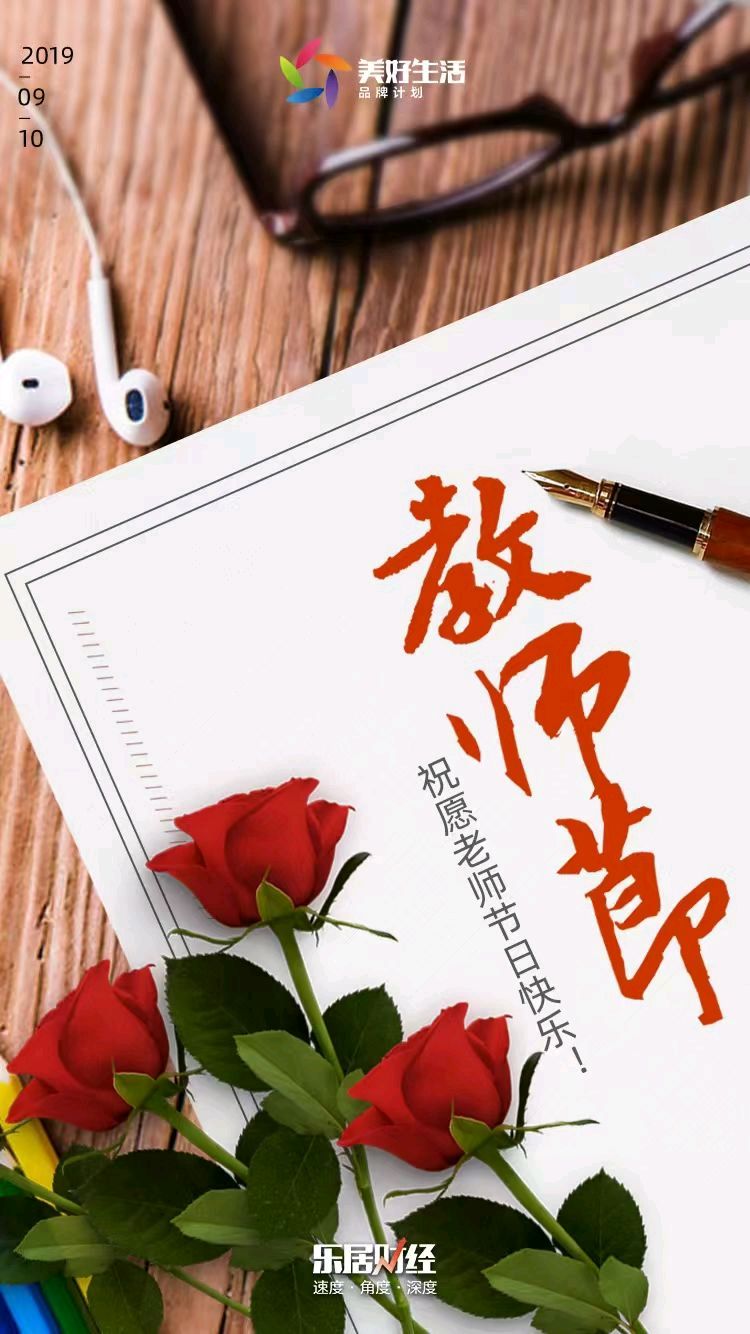 2019
09
10
美好生活
品牌计划
教师节
祝愿老师节日快乐！
乐居财经
速度·角度·深度